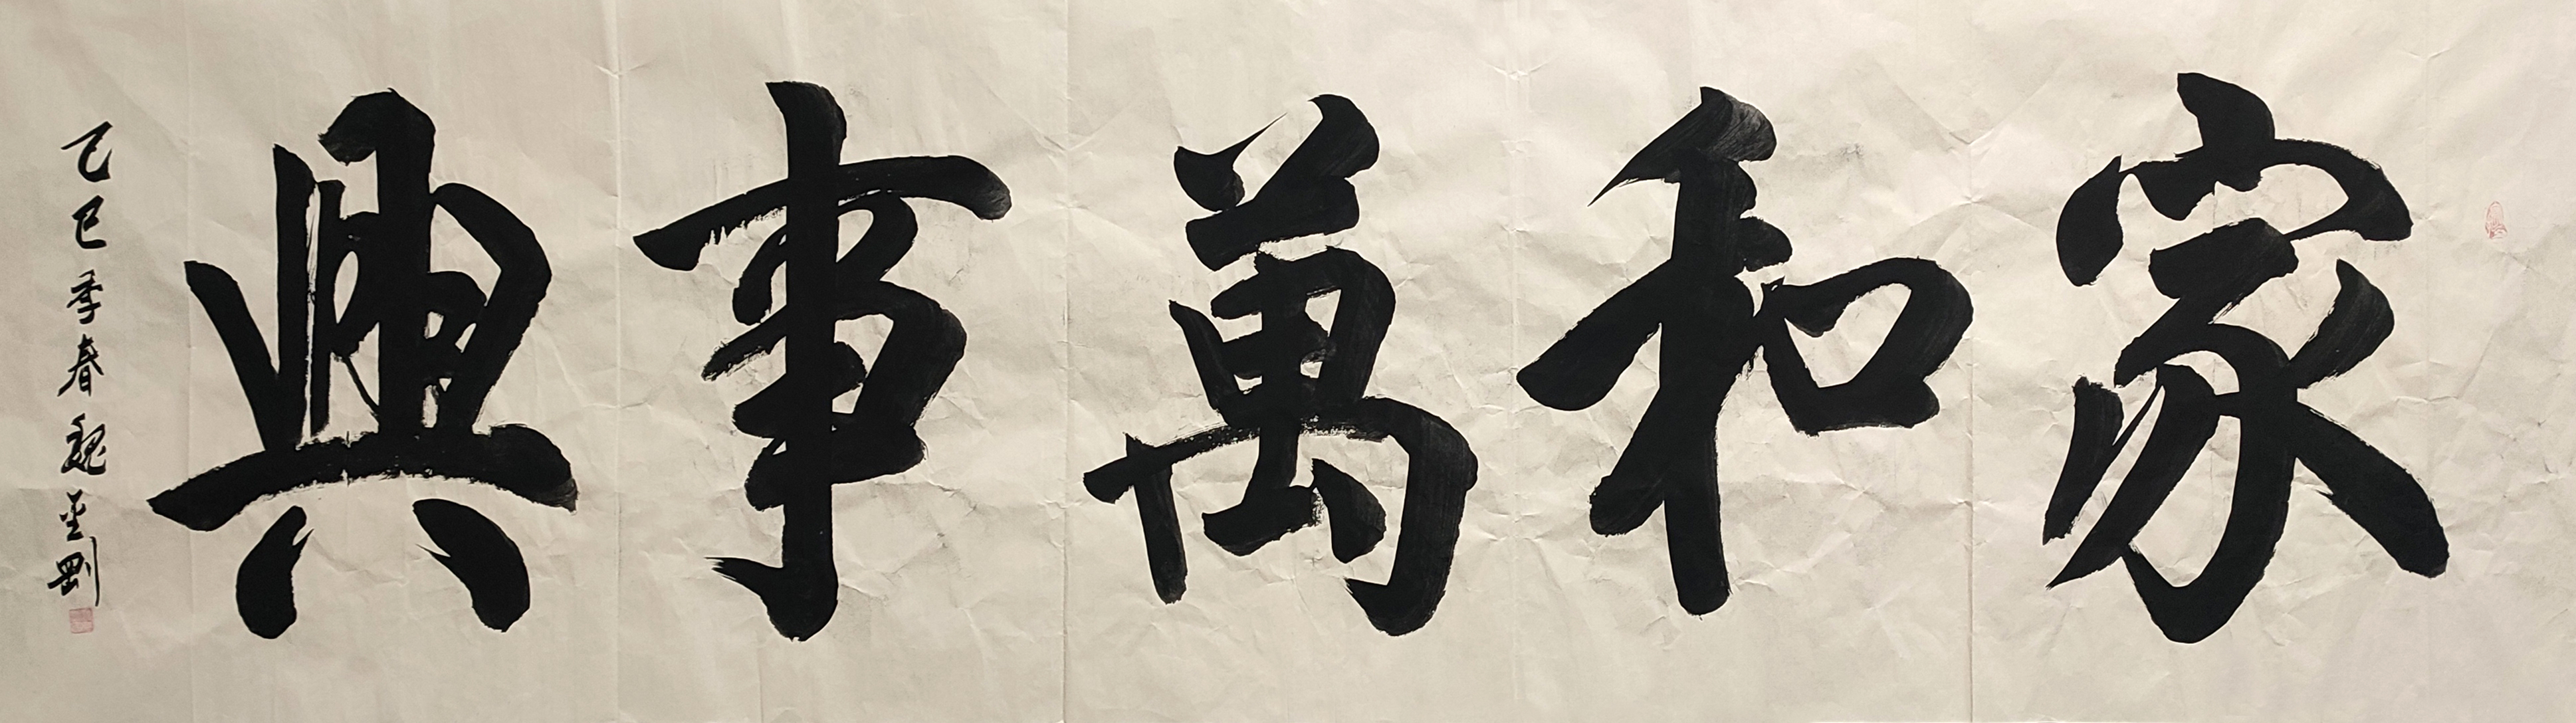 家和萬事興
乙巳季春魏金剛